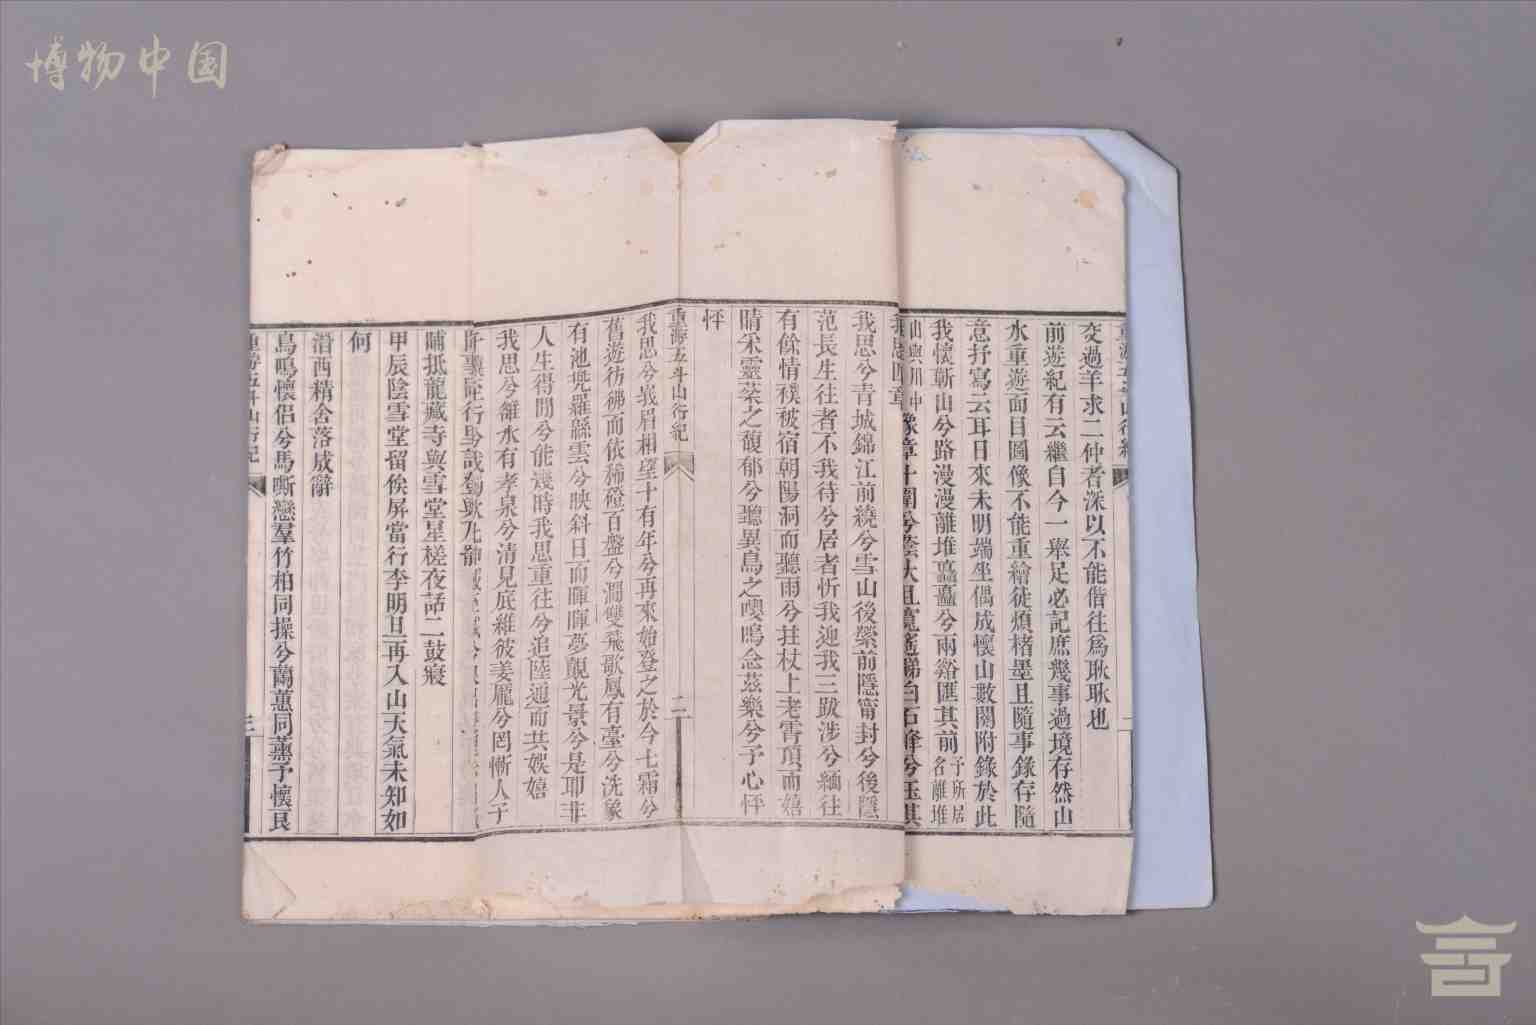 博物中国
交過羊求二仲者深以不能偕往為耿耿也
前遊紀有云繼自今一舉足必記庶幾事過境存然山
水重遊面目圖像不能重繪徒煩楮墨且隨事錄存隨
意抒寫云耳日來未明端坐偶成懷山數闋附錄於此
我懷靳山兮路漫漫離堆矗矗兮兩谿匯其前予所居名離堆
我思兮青城錦江前繞兮雪山後縈前隱甯封兮後隱
范長生往者不我待兮居者忻我迎我三跋涉兮緬往
有餘情襆被宿朝陽洞而聽雨兮拄杖上老霄頂而嬉
晴采靈藥之馥郁兮聽異鳥之嚶鳴念茲樂兮予心怦
怦
重游五斗山行紀
二
我思兮峩眉相望十有年兮再來始登之於今七霜兮
舊遊彷彿而依稀磴百盤兮澗雙飛歌鳳有臺兮洗象
有池兜羅緜雲兮映斜日而暉暉夢覩光景兮是耶非
人生得閒兮能幾時我思重往兮追陸通而共娛嬉
我思兮雒水有孝泉兮清見底維彼姜龐兮罔慚人子
晡抵龍藏寺與雪堂星槎夜話二鼓寢
甲辰陰雪堂留俟屏當行李明旦再入山天氣未知如
何
潛西精舍落成辭
鳥鳴懷侶兮馬嘶戀羣竹柏同操兮蘭蕙同薰予懷艮
五斗山行紀
三